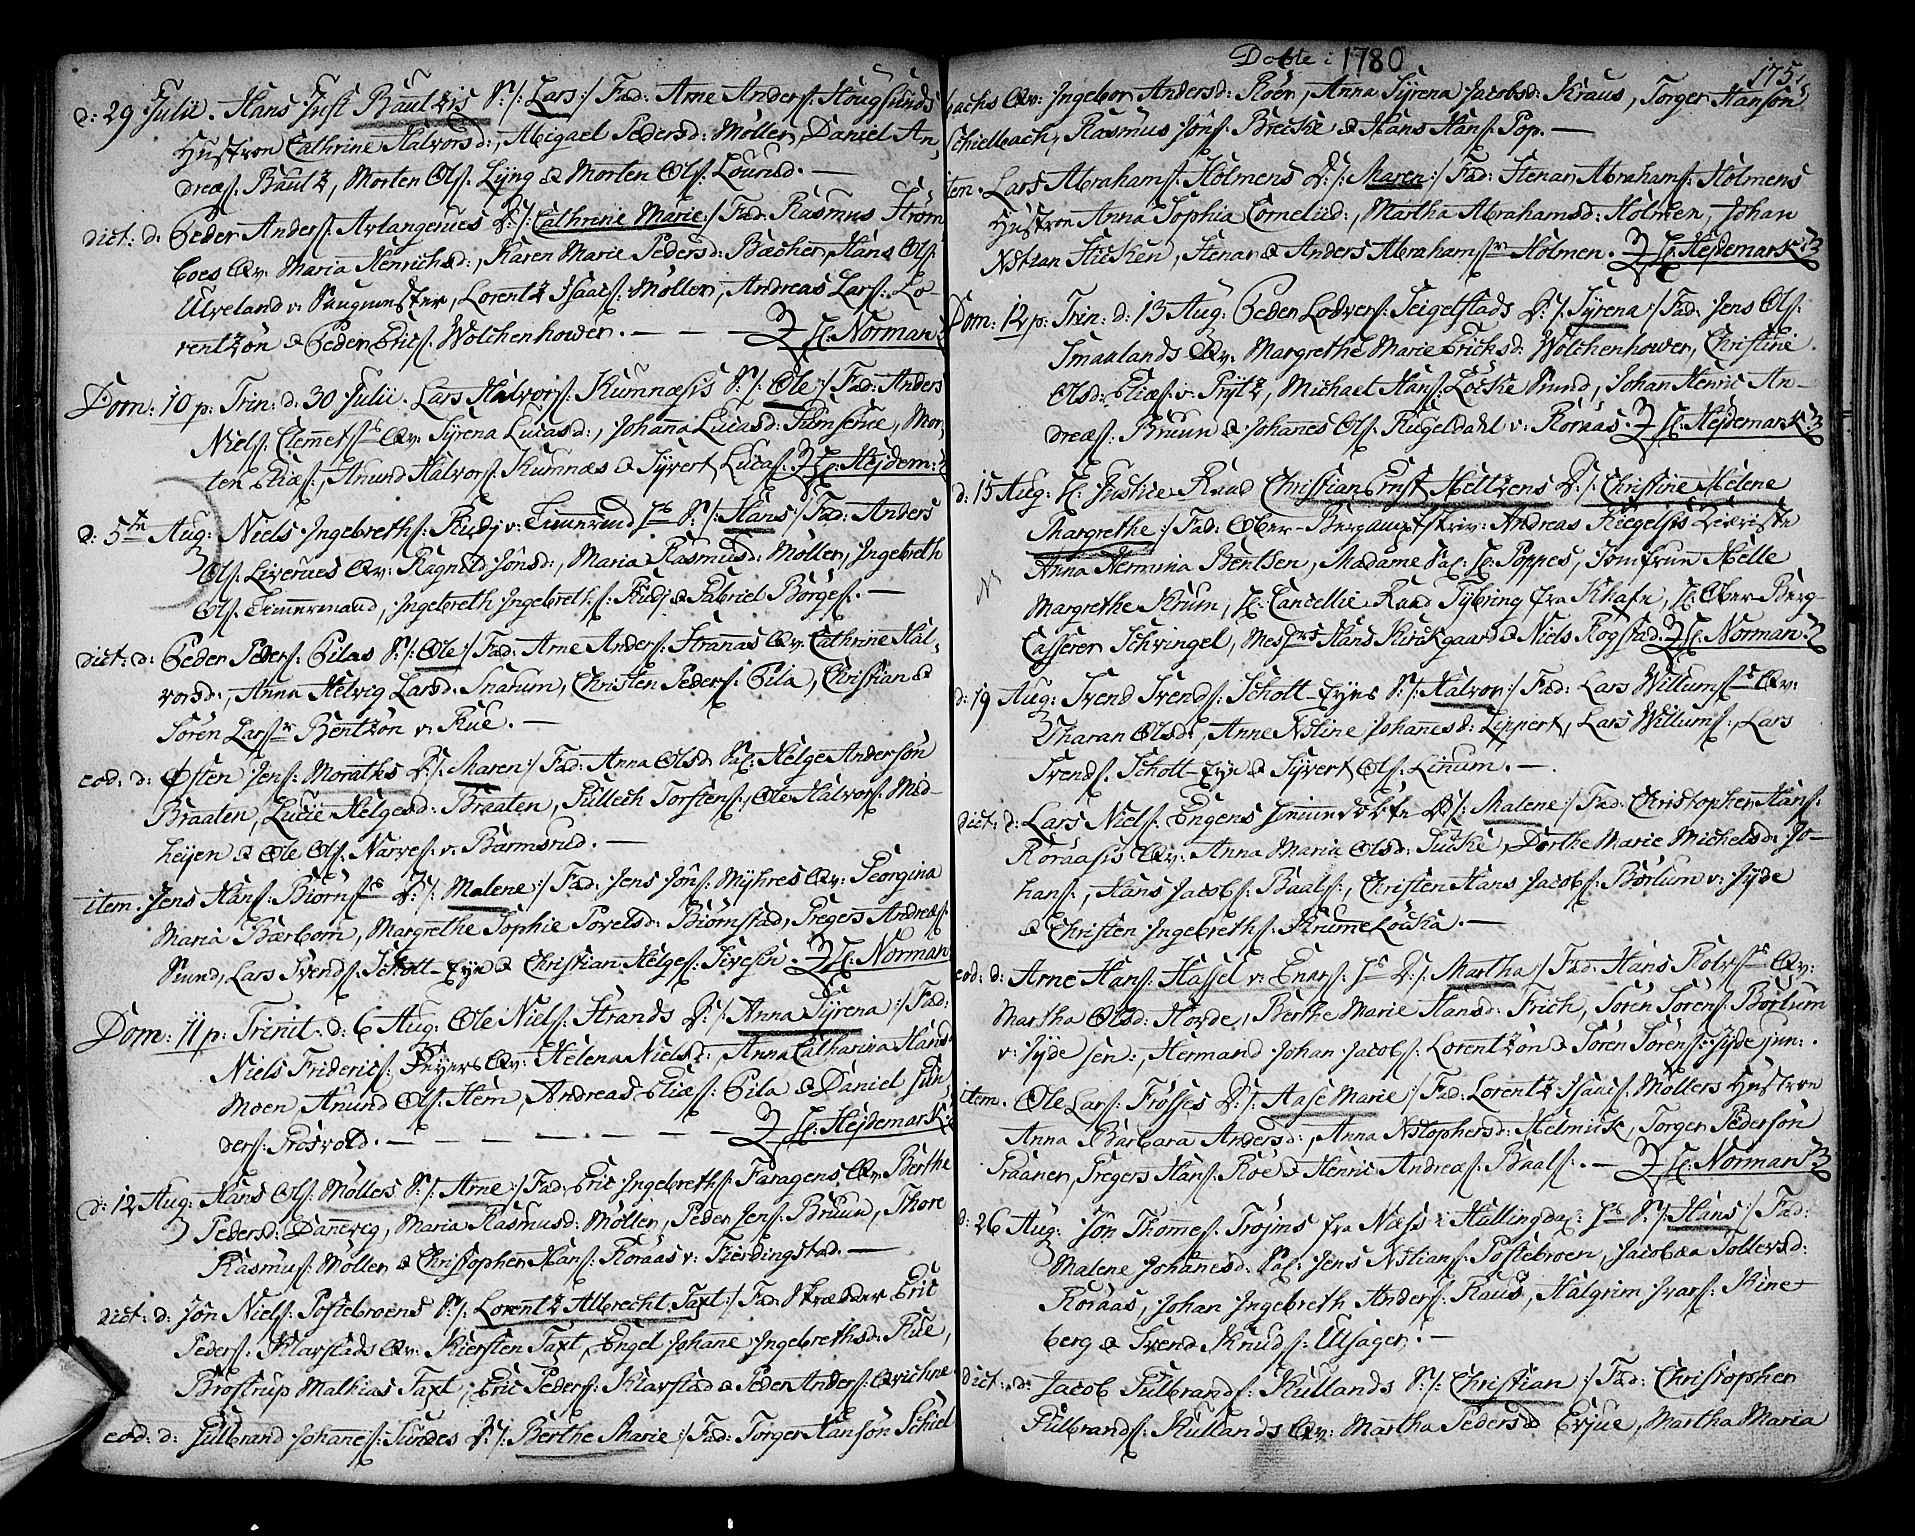 d: 29 Julii. Hans Just Baultzis S:/: Lars:/ Fad: Arne Anders: Hougsunds
Hustroe Cathrine Halvorsd:, Abigael Pedersd: Möller, Daniel An-
dreæs: Baultz, Morten Ols: Lÿng & Morten Ols: Lourud. —
dict: d: Peder Anders: Arlangerues D:/: Cathrine Marie:/ Fad: Rasmus Ström-
boes Qv: Maria Henrichsd:, Karen Marie Pedersd: Bacher, Hans Ols:
Ulveland v: Saugmester, Lorentz Isaacs: Möller, Andreas Lars: Lo-
rentzön & Peder Erics: Wolchenhower. — — — H: Norman
Dom: 10 p: Trin: d: 30 Julii. Lars Halvors: Kumnæsis S:/: Ole:/ Fad: Anders
Niels: Clemets Qv: Sÿrena Lucasd:, Johana Lucasd: Mor-
ten Eliæs:, Anund Halvors: Kumnæs & Sÿvert Lucas: H: Hejdem:
d: 5te Aug: Niels Ingebreths: Rudj v: S:/: Hans:/ Fad: Anders
Ols: Liverues Qv: Ragnild Jonsd:, Maria Rasmusd: Möller, Ingebreth
Ols: Timmermand, Ingebreth Ingebreths: Rudj & Gabriel Börges: —
dict: d: Peder Peders: Pilas S:/: Ole:/ Fad: Arne Anders: Stranas Qv: Cathrine Hal-
vorsd:, Anna Helvig Larsd: Snarum, Christen Peders: Pila, Christian &
Sören Lars: Bentzon v: Rue. —
eod: d: Østen Jens: Moraths D:/: Maren:/ Fad: Anna Olsd: Helge Anderson
Braaten, Lucie Helgesd: Braaten, Gullech Torstens:, Ole Halvors: Mid-
heÿen & Ole Ols: Narves: v: Barmsrud. —
item. Jens Hans: Biörns: D:/: Malene:/ Fad: Jens Jöns: Mÿhres Qv: Georgina
Maria Bærbom, Margrethe Sophie Povelsd: Biörnstad, Gregers Andreæs:
Sund, Lars Svends: Schott-Eye & Christian Helges: H: Norman
Dom: 11 p: Trinit: d: 6 Aug: Ole Niels: Strands D:/: Anna Sÿrena:/ Fad:
Niels Friderics: Qv: Helena Nielsd:, Anna Catharina Hansd:
Moen, Anund Ols: Hem, Andreas Eliæs: Pila & Daniel Gun-
ders: Grösvold. — — — H: Hejdemark
d: 12 Aug: Hans Ols: Möllers S:/: Arne:/ Fad: Eric Ingebreths: Faragens Qv: Berthe
Pedersd: Danevig, Maria Rasmusd: Möller, Peder Jens: Bruun, Thore
Rasmus: Möller & Christopher Hans: Roraas v: Fierdingstad. —
dict: d: Jön Niels: Postebroens S:/: Lorentz Albrecht Taxt:/ Fad: Skrædder Eric
Peders: Klarstads Qv: Kiersten Taxt, Engel Johane Ingebrethsd: Rue,
Brostrup Mathias Taxt, Eric Peders: Klarstad & Peder Anders:
eod: d: Gulbrand Johanes: Sundes D:/: Berthe Marie:/ Fad: Torger Hansön Schiel-
Døbte i 1780
175
bachs Qv: Ingebor Andersd: Roen, Anna Sÿrena Jacobsd: Kraus, Torger Hansön
Schielbach, Rasmus Jöns: Brecke & Hans Hans: Pop. —
item. Lars Abrahams: Holmens D:/: Maren:/ Fad: Henar Abrahams: Holmens
Hustroe Anna Sophia Cornelied:, Martha Abrahamsd: Holmen, Johan
Nstian Hicken, Henar & Anders Abrahams: Holmen. H: Hejdemark
Dom: 12 p: Trin: d: 13 Aug: Peder Lodvers: Teigelstads D:/: Sÿrena:/ Fad: Jens Ols:
Smaalands Qv: Margrethe Marie Ericksd: Wolchenhower, Christine
Olsd: Eliæs: v: Prÿtz, Michael Hans: Löcke Sund, Johan Henric An-
dreæs: Bruun & Johanes Ols: Rugeldahl v: Roraas. H: Hejdemark
d: 15 Aug: H: Justice Raad Christian Ernst Heltzens D:/: Christine Helene
Margrethe:/ Fad: Ober-Berg Andreas Riegelsis
Anna Hermina Bentsen, Madame H: Poppes, Jomfrue Helle
Margrethe Krum, H: Cancellie Raad Tÿbring fra Khafn, H: Ober Berg-
Casserer Schvingel, Mess: Hans Kirckgaard & Niels Rogstad. H: Norman
d: 19 Aug: Svend Svends: Schott-Eyes S:/: Halvor:/ Fad: Lars Willums: Qv:
Tharan Olsd:, Anne Nstine Johanesd: Lippert, Lars Willums:, Lars
Svends: Schott-Eye & Sÿvert Ols: Linum. —
dict: d: Lars Niels: Engens D:/: Malene:/ Fad: Christopher Hans:
Roraasis Qv: Anna Maria Olsd: Sücke, Dorthe Marie Michelsd: Jo-
hans:, Hans Jacobs: Baals:, Christen Hans Jacobs: Börtum v: Sÿde
& Christen Ingebreths: Krumelöcka. —
eod: d: Arne Hans: Hassel v: Enars: D:/: Martha:/ Fad: Hans Rolvs: Qv:
Martha Olsd: Horde, Berthe Marie Hansd: Frich, Sören Sörens: Börtum
v: Sÿde sen:, Hermand Johan Jacobs: Lorentzön & Sören Sörens: Sÿde jun:
item. Ole Lars: Frosses D:/: Aase Marie:/ Fad: Lorentz Isaacs: Möllers Hustroe
Anna Barbara Andersd:, Anna Nstophersd: Helmick, Torger Pederson
Praaner, Gregers Hans: Roe & Henric Andreæs: Baals:. — H: Norman
d: 26 Aug: Jön Thomes: Trojms fra Næss i Hallingdal: S:/: Hans:/ Fad:
Malene Johanesd: Jens Nstians: Postebroen, Jacobæa Tollevsd:
Roraas, Johan Ingebreth Anders: Raus, Halgrim Ivars: Rine-
berg & Svend Knuds: Ulsager. —
dict: d: Jacob Gulbrands: Rullands S:/: Christian:/ Fad: Christopher
Gulbrands: Rullands Qv: Martha Pedersd: Martha Maria